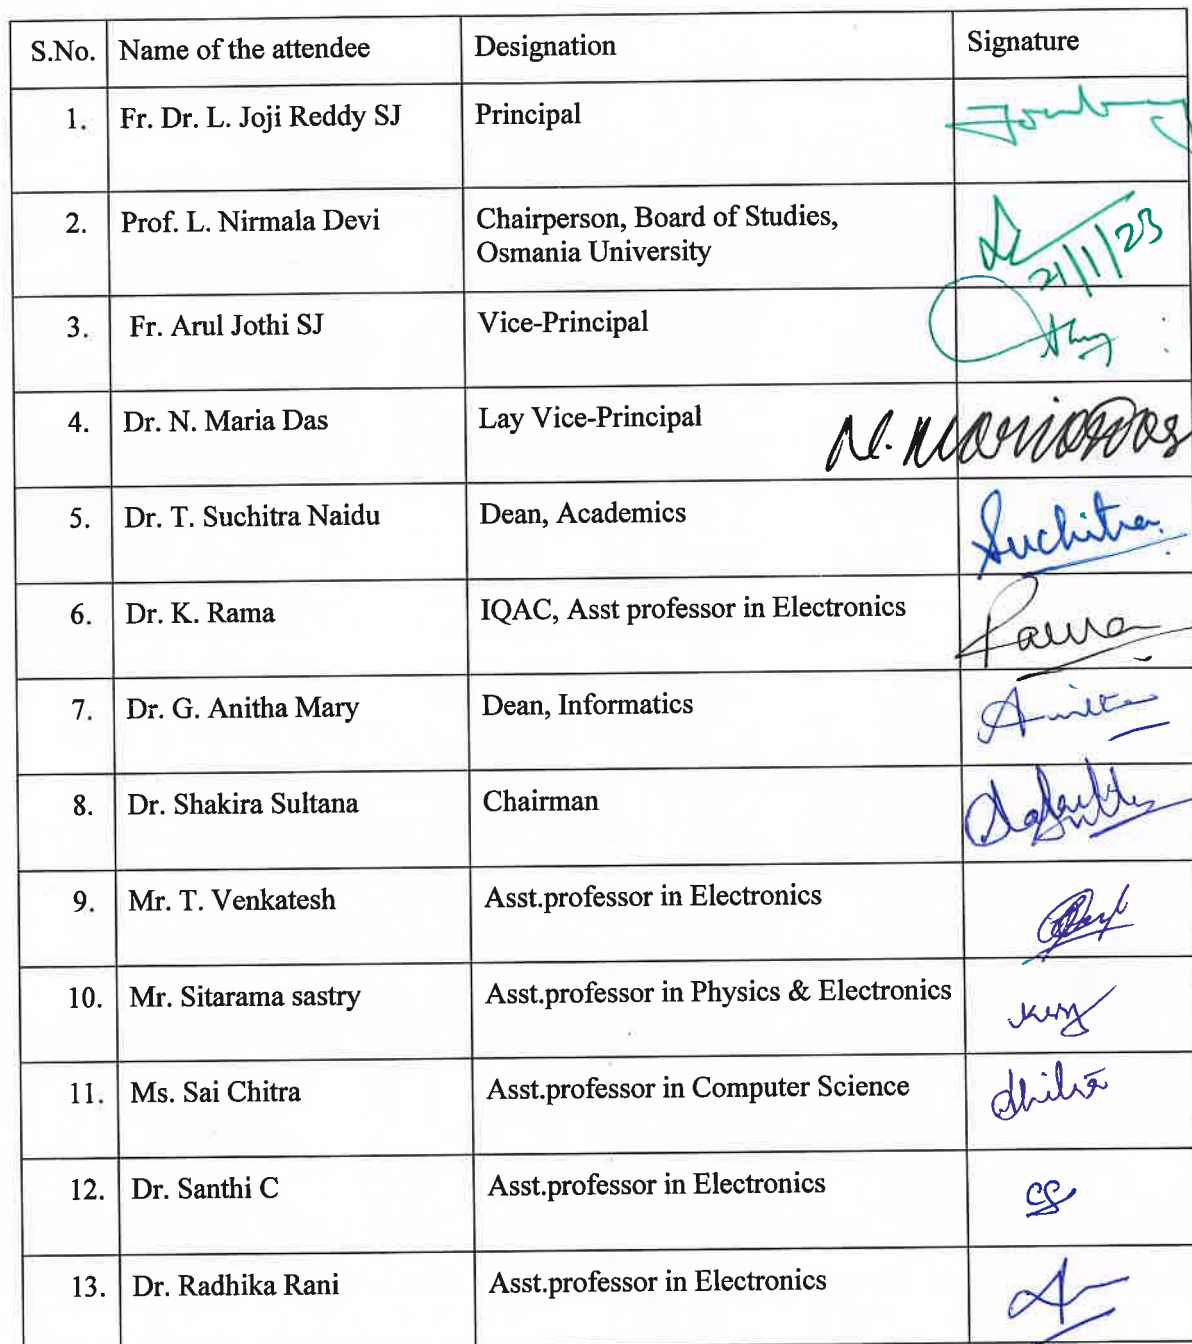 S.No. Name of the attendee Designation Signature
1. Fr. Dr. L. Joji Reddy SJ Principal
2. Prof. L. Nirmala Devi Chairperson, Board of Studies,
Osmania University
21/1/23
3. Fr. Arul Jothi SJ Vice-Principal
4. Dr. N. Maria Das Lay Vice-Principal N. MariaDas
5. Dr. T. Suchitra Naidu Dean, Academics Suchitra
6. Dr. K. Rama IQAC, Asst professor in Electronics Rama
7. Dr. G. Anitha Mary Dean, Informatics Anitha
8. Dr. Shakira Sultana Chairman
9. Mr. T. Venkatesh Asst.professor in Electronics
10. Mr. Sitarama sastry Asst.professor in Physics & Electronics
11. Ms. Sai Chitra Asst.professor in Computer Science
12. Dr. Santhi C Asst.professor in Electronics
13. Dr. Radhika Rani Asst.professor in Electronics